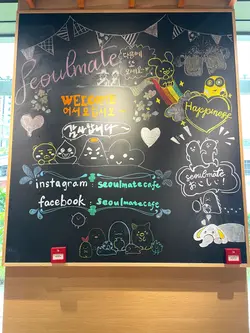 Seoulmate
WELCOME
어서오십시오
Happiness
감사합니다
instagram : seoulmatecafe
facebook : seoulmatecafe
seoulmate
おこし!